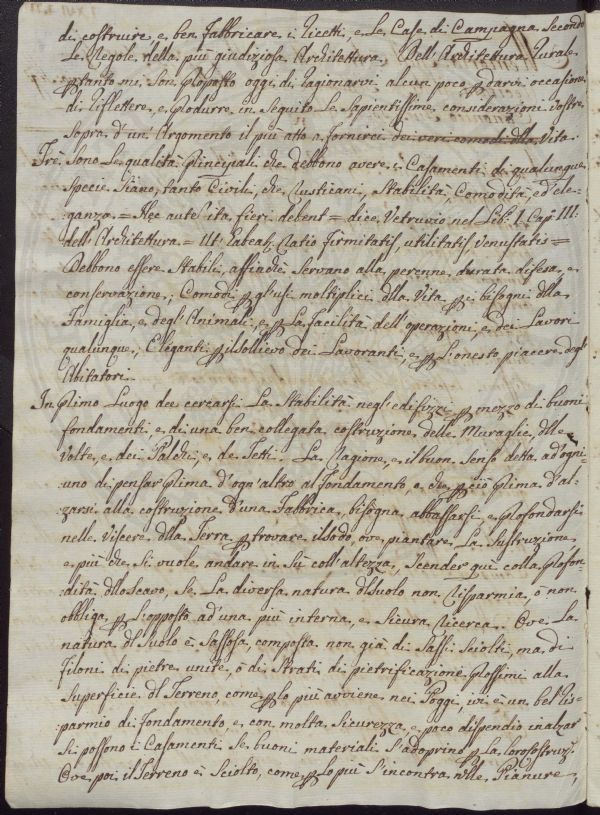 di costruire, e ben fabbricare i Ricetti, e le Case di Campagna secondo
le Regole della più giudiziosa Architettura. Dell'Architettura Rurale
ptanto mi son proposto oggi di ragionarvi alcun poco p darvi occasione
di riflettere, e produrre in seguito le sapientissime considerazioni vostre
sopra d'un'Argomento il più atto a fornirci dei veri comodi dlla Vita.
Trè sono le qualità principali che debbono avere i Casamenti di qualunque
specie siano, tanto Civili, che Rusticani, Stabilità, Comodità, ed'ele-
ganza = Hec aute' ita fieri debent = dice Vetruvio nel Lib: I. Cap: III:
dell'Architettura = Ut habeat, Ratio firmitatis, utilitatis venustatis =
Debbono essere stabili, affinchè servano alla perenne, durata difesa, e
conservazione; Comodi p gl'usi moltiplici dlla Vita p i bisogni dlla
Famiglia, e degl'Animali, e p la facilità dell'operazioni, e dei Lavori
qualunque; Eleganti p il sollievo dei Lavoranti, e p l'onesto piacere degl'
Abitatori.
In primo luogo dee cercarsi la stabilità negl'edifizzi p mezzo di buoni
fondamenti, e di una ben collegata costruzione delle Muraglie, dlle
Volte, e dei Palchi, e de Tetti. La Ragione, e il buon senso detta ad'ogni-
uno di pensar prima d'ogn'altro al fondamento, e che p ciò prima d'al-
zarsi alla costruzione d'una Fabbrica, bisogna abbassarsi, e profondarsi
nelle viscere dlla Terra p trovare il sodo, ove piantare la sustruzione
e più che si vuole andare in sù coll'altezza, scender quì colla profon-
dità dllo scavo, se la diversa natura dl suolo non risparmia, ò non
obbliga p l'opposto ad'una più interna, e sicura ricerca. Ove la
natura dl suolo è sassosa, composta non già di sassi sciolti, ma di
filoni di pietre unite, ò di strati di pietrificazione prossimi alla
superficie dl Terreno, come p lo più avviene nei Poggi, ivi è un bel ris-
parmio di fondamento, e con molta sicurezza, e poco dispendio inalzar
si possono i Casamenti se buoni materiali s'adoprino p la loro costruz:
Ove poi il Terreno è sciolto, come p lo più s'incontra nlle Pianure,